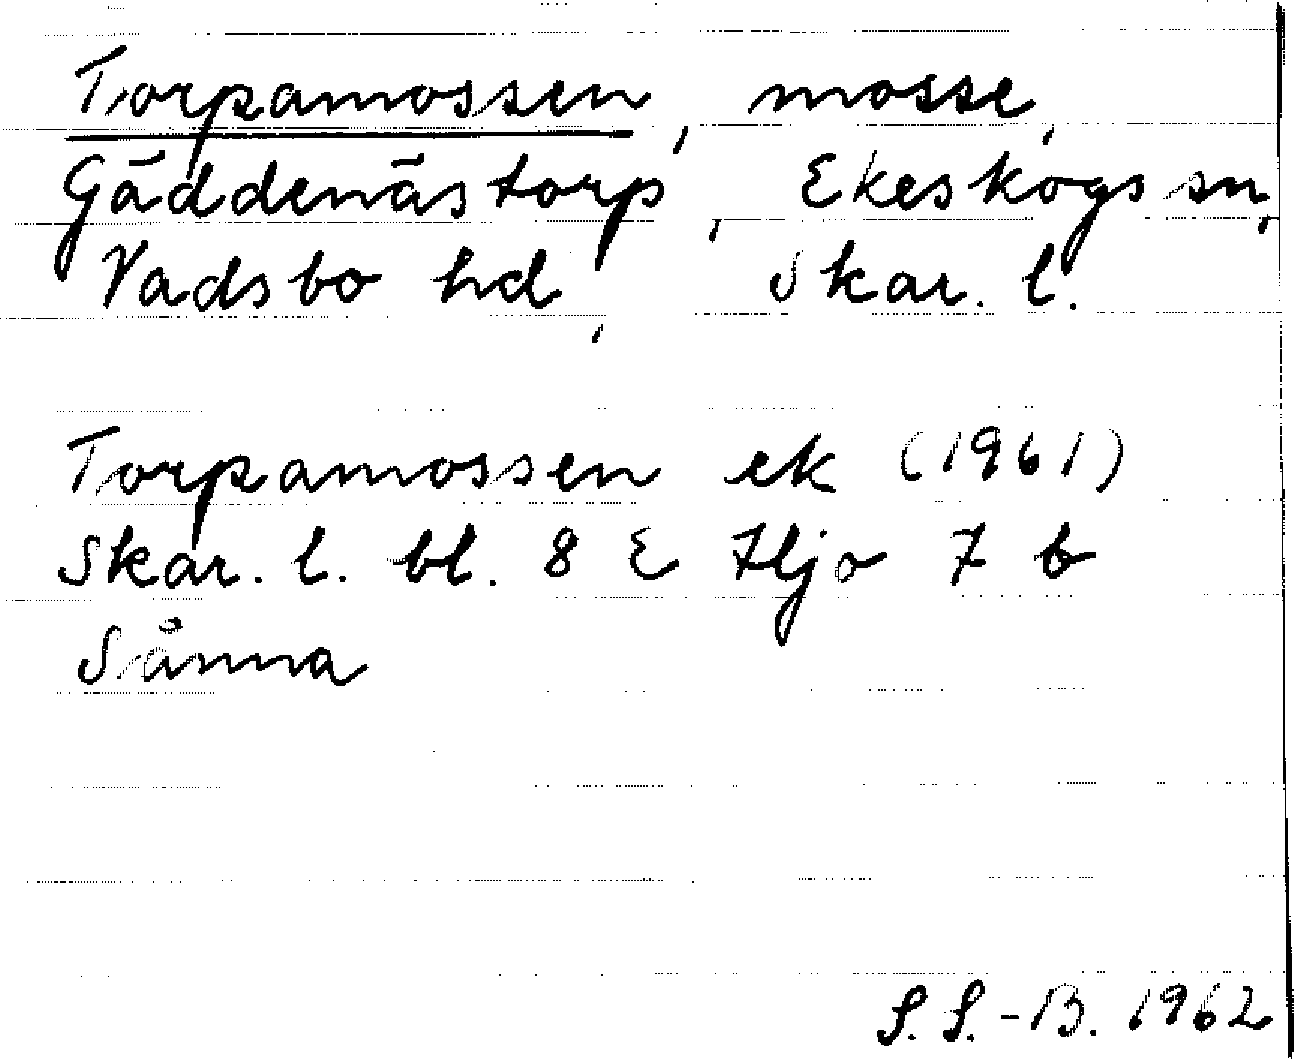 Torpamossen, mosse,
Gäddenästorp, Ekeskogs sn,
Vadsbo hd, Skar. l.
Torpamossen ek (1961)
Skar. l. bl. 8 E Hjo 7 b
Sånna
S. S.-B. 1962